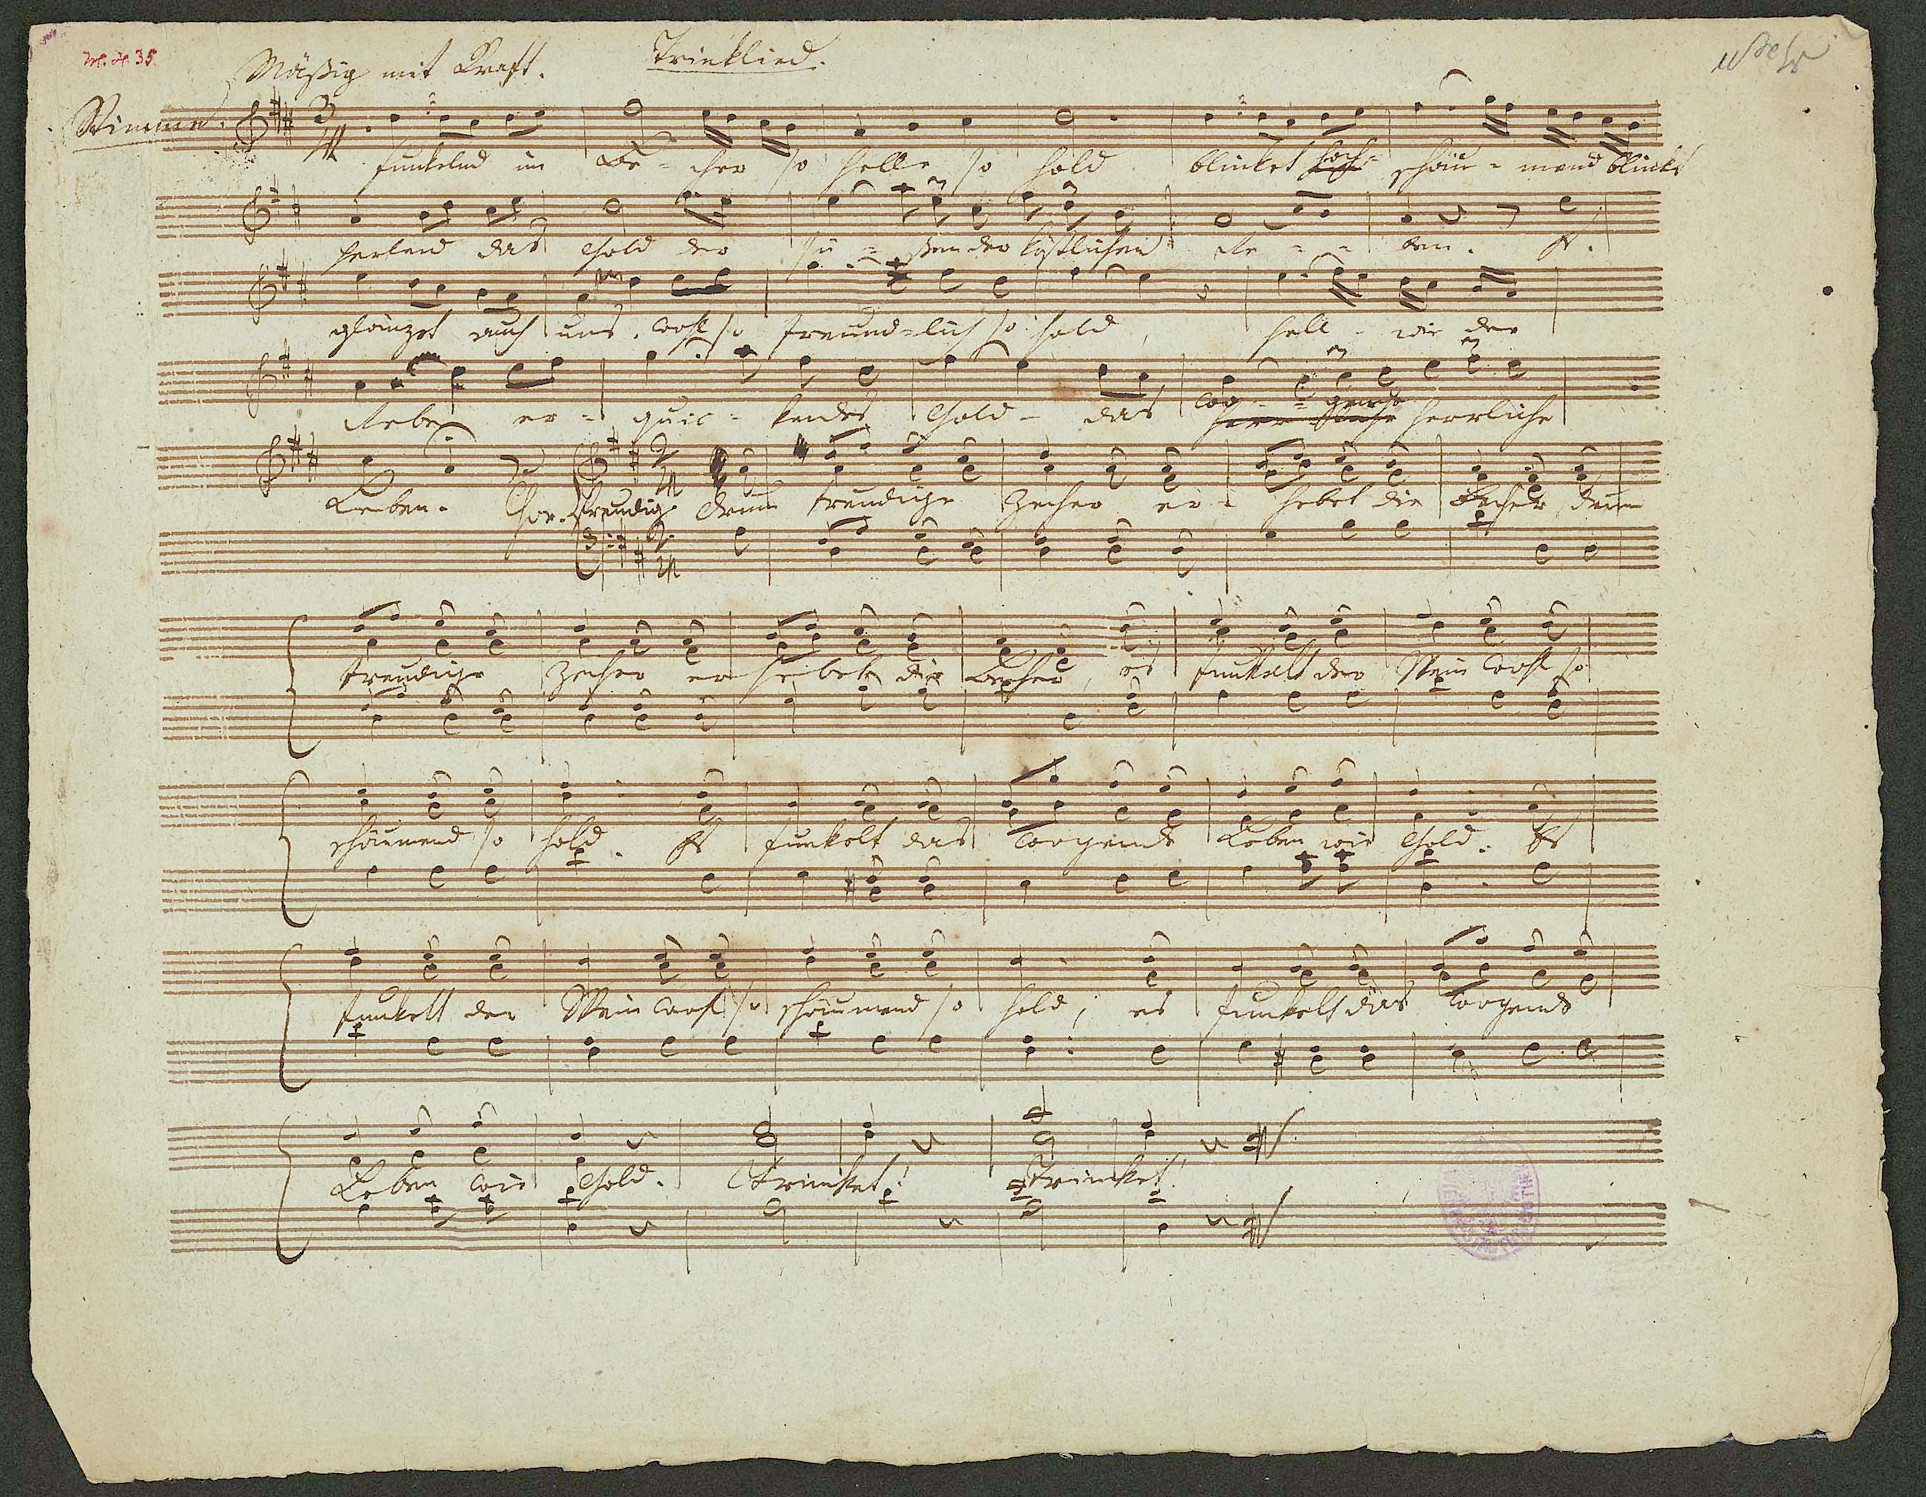 35.
Mäßig mit Kraft. Trinklied.
Stimme.
funkelnd im Be - cher so helle so hold blinket schäu - mend blinkt
perlend das Gold der sü - ßen der köstlichen Re - - - ben. Es
glänzet auch uns. so freund - lich so hold, hell - wie der
Rebe er - quic - kendes Gold - das herrliche
Leben. Chor. Freudig. Drum freudige Zecher er - hebet die Becher, drum
freudige Zecher er hebet die Becher, es funkelt der Wein so
schäumend so hold. Es funkelt das wogende Leben wie Gold. Es
funkelt der Wein so schäumend so hold, es funkelt das wogende
Leben wie Gold. Trinket! Trinket!